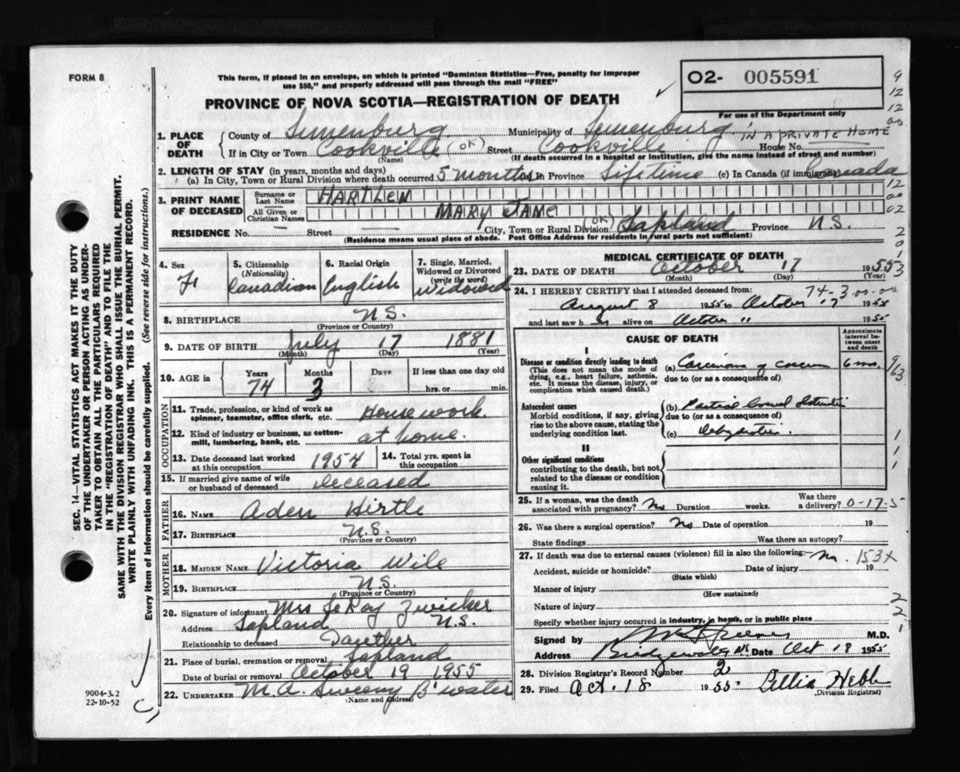 FORM 8
This form, if placed in an envelope, on which is printed "Dominion Statistics—Free, penalty for improper
use $50," and properly addressed will pass through the mail "FREE"
O2- 005591
For use of the Department only
PROVINCE OF NOVA SCOTIA—REGISTRATION OF DEATH
1. PLACE OF DEATH
County of Lunenburg Municipality of Lunenburg IN A PRIVATE HOME
If in City or Town Cookville (OK) Street Cookville House No.
(Name) (If death occurred in a hospital or institution, give the name instead of street and number)
2. LENGTH OF STAY (in years, months and days)
(a) In City, Town or Rural Division where death occurred 5 months In Province Lifetime (c) In Canada (if immigrant) Canada
3. PRINT NAME OF DECEASED
Surname or Last Name
All Given or Christian Names MARY JANE
RESIDENCE No. — Street City, Town or Rural Division (OK) Lapland Province N.S.
(Residence means usual place of abode. Post Office Address for residents in rural parts not sufficient)
4. Sex F
5. Citizenship (Nationality) Canadian
6. Racial Origin English
7. Single, Married, Widowed or Divorced (write the word) Widowed
8. BIRTHPLACE N.S.
(Province or Country)
9. DATE OF BIRTH July 17 1881
(Month) (Day) (Year)
10. AGE in Years Months Days If less than one day old
74 3 hrs. or min.
OCCUPATION
11. Trade, profession, or kind of work as spinner, teamster, office clerk, etc. Housework
12. Kind of industry or business, as cotton-mill, lumbering, bank, etc. at home.
13. Date deceased last worked at this occupation 1954
14. Total yrs. spent in this occupation
15. If married give name of wife or husband of deceased deceased
FATHER
16. NAME Aden Hirtle
17. BIRTHPLACE N.S.
(Province or Country)
MOTHER
18. MAIDEN NAME Victoria Wile
19. BIRTHPLACE N.S.
(Province or Country)
20. Signature of informant Mrs LeRoy Zwicker
Address Lapland N.S.
Relationship to deceased
21. Place of burial, cremation or removal Lapland
Date of burial or removal October 19 1955
22. UNDERTAKER M.A. Sweeny B'water
(Name and Address)
MEDICAL CERTIFICATE OF DEATH
23. DATE OF DEATH October 17 1955
(Month) (Day) (Year)
24. I HEREBY CERTIFY that I attended deceased from:
74-3
August 8 1955 to October 17 1955
and last saw her alive on October " 1955
CAUSE OF DEATH
Approximate interval between onset and death
I
Disease or condition directly leading to death
(This does not mean the mode of dying, e.g., heart failure, asthenia, etc. It means the disease, injury, or complication which caused death.)
(a) Carcinoma of 6 mos.
due to (or as a consequence of)
Antecedent causes
Morbid conditions, if any, giving rise to the above cause, stating the underlying condition last.
(b) Partial bowel
due to (or as a consequence of)
(c) Dehydration.
II
Other significant conditions
contributing to the death, but not related to the disease or condition causing it.
25. If a woman, was the death associated with pregnancy? No Duration weeks. Was there a delivery? 0-17-5
26. Was there a surgical operation? No Date of operation 19
State findings Was there an autopsy?
27. If death was due to external causes (violence) fill in also the following:
Accident, suicide or homicide? Date of injury 19
(State which)
Manner of injury
(How sustained)
Nature of injury
Specify whether injury occurred in industry, in home, or in public place
Signed by M.D.
Address Bridgewater NS Date Oct 18 1955
28. Division Registrar's Record Number 2
29. Filed Oct. 18 1955 Lillia Hebb
(Division Registrar)
SEC. 14—VITAL STATISTICS ACT MAKES IT THE DUTY
OF THE UNDERTAKER OR PERSON ACTING AS UNDER-
TAKER TO OBTAIN ALL THE PARTICULARS REQUIRED
IN THE "REGISTRATION OF DEATH" AND TO FILE THE
SAME WITH THE DIVISION REGISTRAR WHO SHALL ISSUE THE BURIAL PERMIT.
WRITE PLAINLY WITH UNFADING INK. THIS IS A PERMANENT RECORD.
Every item of information should be carefully supplied. (See reverse side for instructions.)
9004-3.2
22-10-52